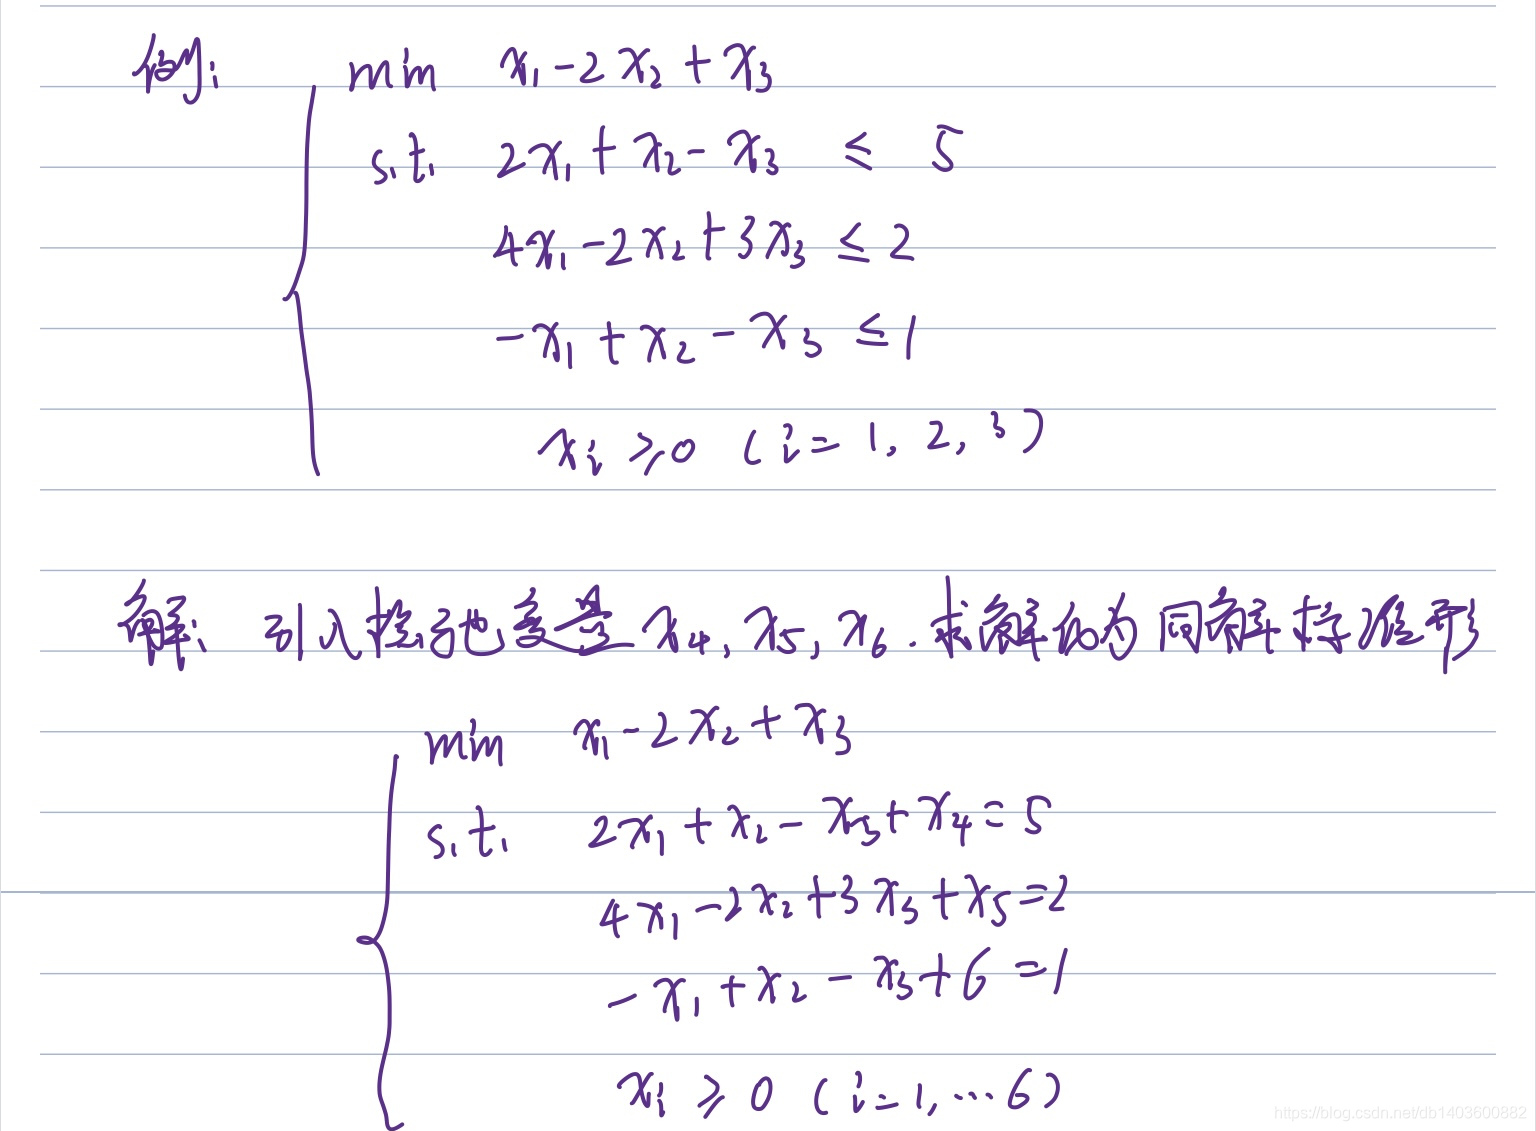 例:
min x₁-2x₂+x₃
s.t. 2x₁+x₂-x₃ ≤ 5
4x₁-2x₂+3x₃ ≤ 2
-x₁+x₂-x₃ ≤ 1
xᵢ ≥ 0 (i=1,2,3)
解: 引入松弛变量 x₄, x₅, x₆. 求解化为同解标准形
min x₁-2x₂+x₃
s.t. 2x₁+x₂-x₃+x₄=5
4x₁-2x₂+3x₃+x₅=2
-x₁+x₂-x₃+6=1
xᵢ ≥ 0 (i=1,…6)
https://blog.csdn.net/db1403600882